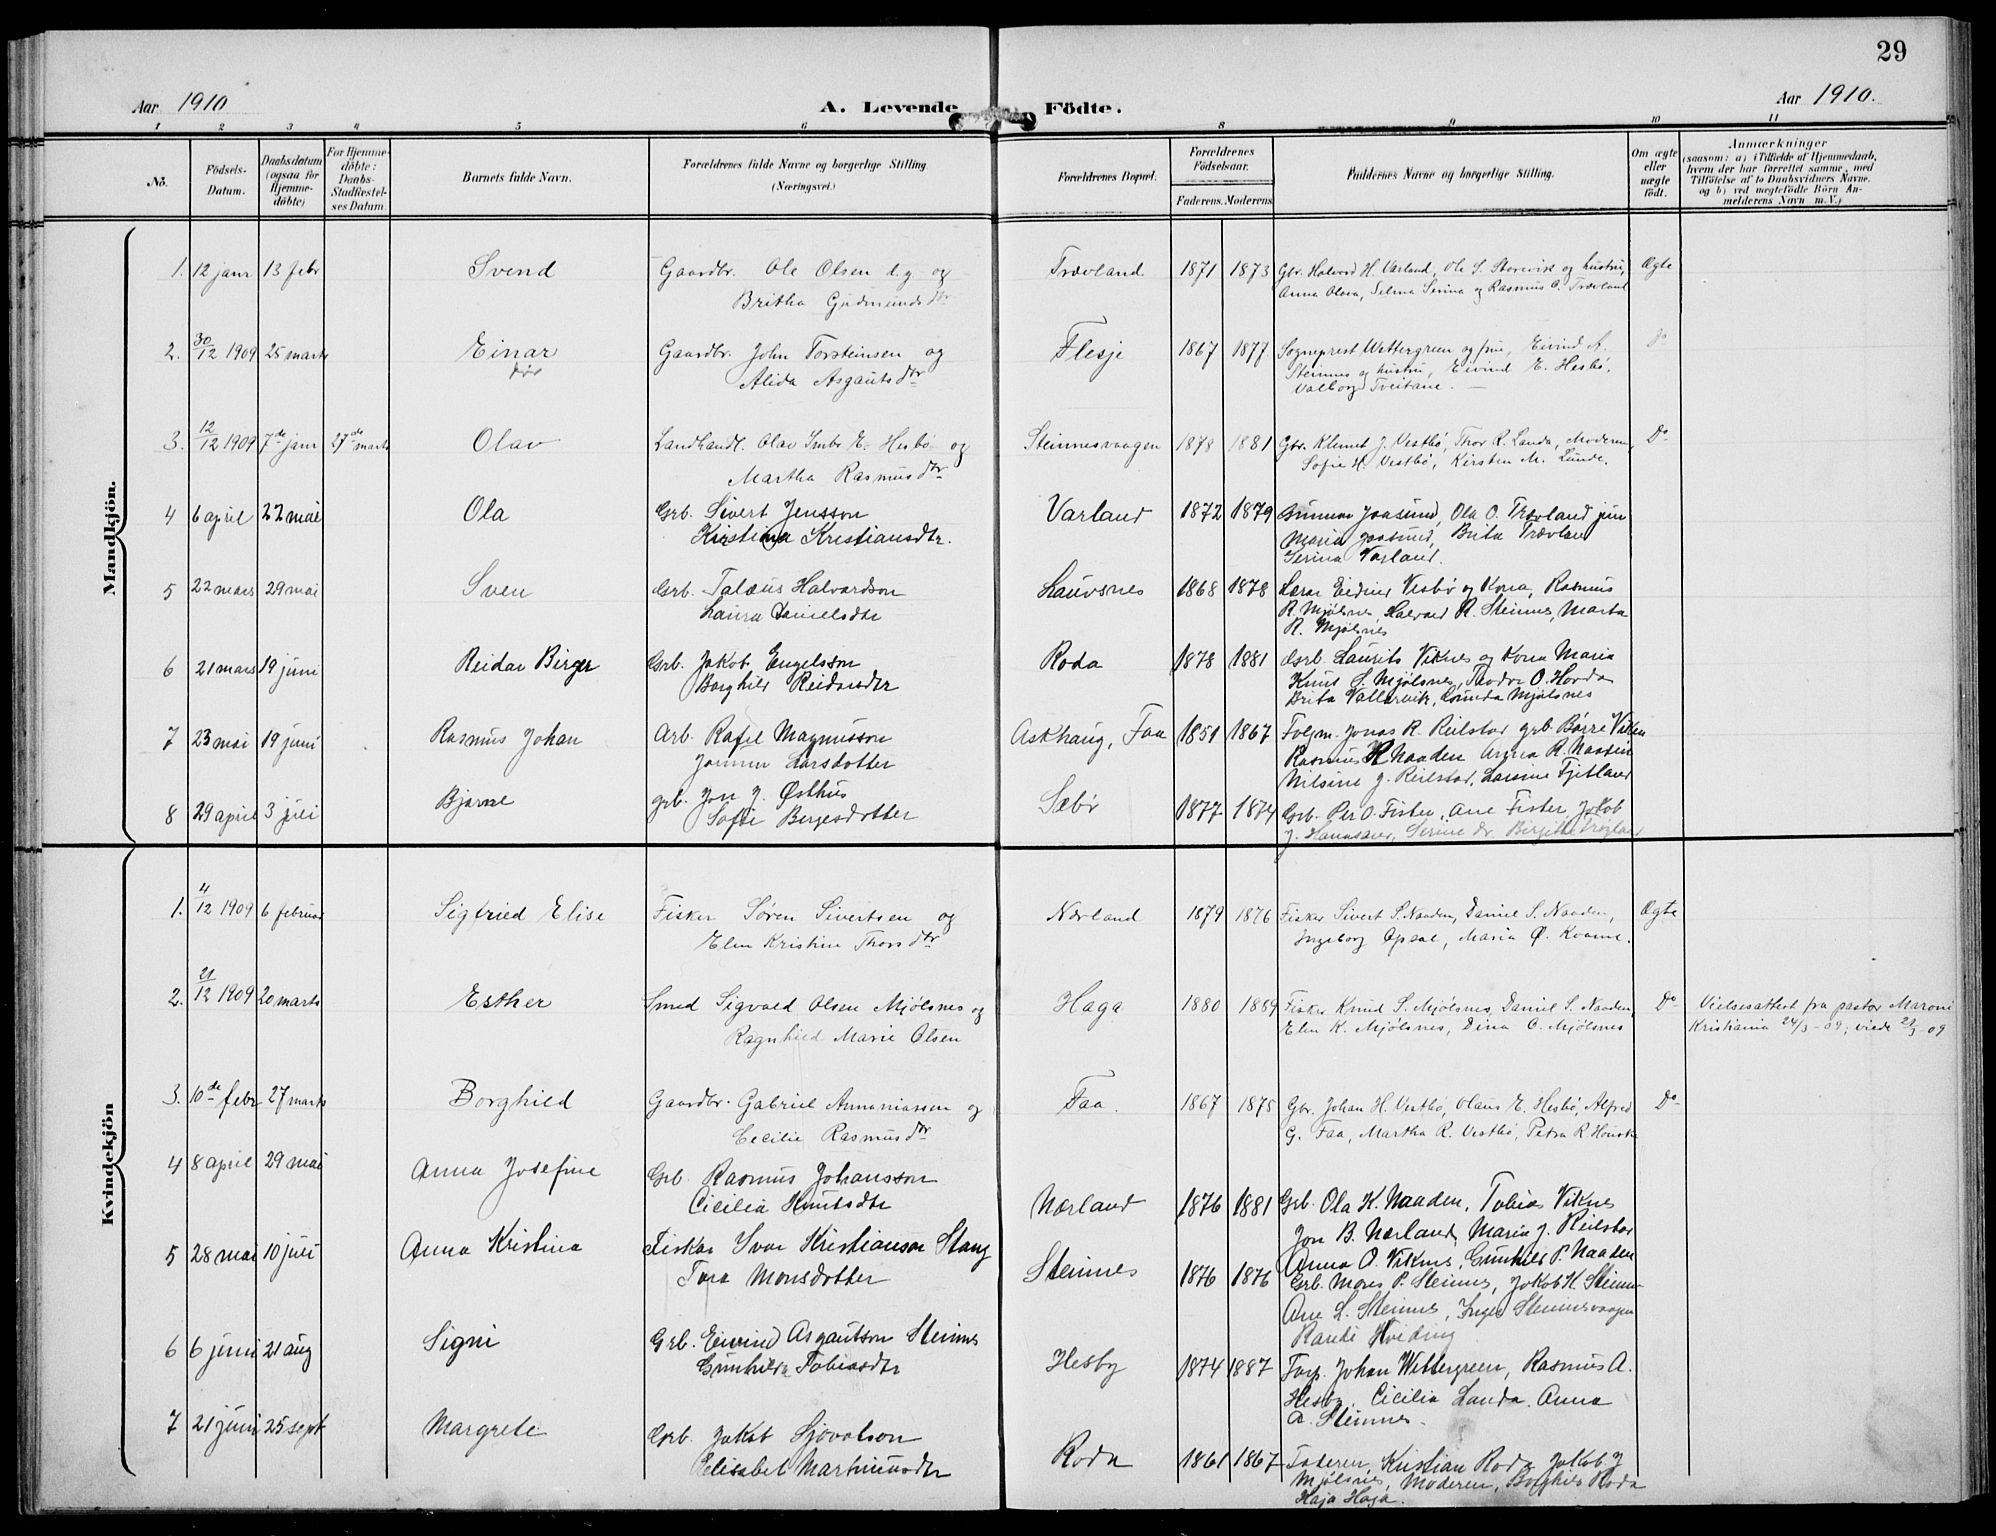 29
Aar 1910
A. Levende Födte.
Aar 1910.
1 2 3 4 5 6 8 9 10 11
No.
Födsels-
Datum.
Daabsdatum
(ogsaa for
Hjemme-
döbte)
For Hjemme-
döbte:
Daabs-
Stadfæstel-
ses Datum.
Barnets fulde Navn.
Forældrenes fulde Navne og borgerlige Stilling.
(Næringsvei.)
Forældrenes Bopæl.
Forældrenes
Födselsaar.
Faderens. Moderens.
Faddernes Navne og borgerlige Stilling.
Om ægte
eller
uægte
födt.
Anmærkninger
(saasom: a) i Tilfælde af Hjemmedaab,
hvem der har forrettet samme, med
Tilföielse af to Daabsvidners Navne,
og b) ved uegtefödte Börn An-
melderens Navn m. V.)
Mandkjön.
1. 12 janr 13 febr Svend Gaardbr. Ole Olsen d.y. og Trævland 1871 1873 Gbr. Halvord H. Varland, Ole S. Storevik og hustru, Ægte
Britha Gudmundsdtr Anna Olava, Selma Serina og Rasmus O. Trævland
2. 30/12 1909 25 marts Einar Gaardbr. John Torsteinsen og Flesje 1867 1877 Sogneprest Wettergreen og frue, Eivind A. Do
Alida Asgautsdtr Steinnes og hustru, Eivind E. Hesbø,
Valborg Tveitane.
3. 12/12 1909 7de janr 27de marts Olav Landhandl. Olav Imbr. E. Hesbø og Steinnesvaagen 1878 1881 Gbr. Klemet J. Vestbø, Thor R. Landa, Moderen, Do
Martha Rasmusdtr Sofie H. Vestbø, Kirsten M. Lunde.
4 6 april 22 mai Ola Grb. Sivert Jensson Varland 1872 1879 Gunnar Jaasund, Ola O. Trævland jun
Kirstina Kristiansdtr. Maria Jaasund, Brita Trævland
Serina Varland.
5 22 mars 29 mai Sven Grb. Talæus Halvardson Lauvsnes 1868 1878 Lærar Eidner Vesbø og Kona, Rasmus
Laura Danielsdtr R. Mjølsnes, Halvard R. Steinnes, Marta
R. Mjølsnes
6 21 mars 19 juni Reidar Birger Grb. Jakob Engelsson Roda 1878 1881 Grb Laurits Viknes og Kona Maria
Borghild Reidarsdtr Knut S. Mjølsnes, Teodor O. Hovda
Brita Vallarvik, Gunda Mjølsnes
7 23 mai 19 juni Rasmus Johan Arb. Rafel Magnusson Askhaug, Faa 1851 1867 Folgm. Jonas R. Reilstad grb. Børre Viken
Larsdotter Rasmus R Naaden Anna R. Naaden
Nilsine J. Reilstad, Larsine Fjetland
8 29 april 3 juli Bjarne grb. Jon J. Østhus Sæbø 1877 1874 Grb. Per O. Fister, Ane Fister, Jakob
Sofie Bergesdotter J. Hanasaer, Serine do. Birgitte
Kvindekjön
1. 4/12 1909 6 februar Sigfried Elise Fisker Søren Sivertsen og Nærland 1879 1876 Fisker Sivert S. Naaden, Daniel S. Naaden, Ægte
Elen Kristine Thorsdtr Ingeborg Opsal, Maria Ø. Kvame.
2. 21/12 1909 20 marts Esther Smed Sigvald Olsen Mjølsnes og Haga 1880 1889 Fisker Knud S. Mjølsnes, Daniel S. Naaden, Do Vielsesattest fra pastor Maroni
Ragnhild Marie Olsen Elen K. Mjølsnes, Dina O. Mjølsnes Kristiania 24/3-09; viede 2/3 09
3. 10de febr 27 marts Borghild Gaardbr. Gabriel Annaniassen og Faa. 1867 1875 Gbr. Johan H. Vestbø, Olaus E. Hesbø, Alfred Do
Cecilie Rasmusdtr G. Faa, Martha R. Vestbø, Petra R
4 8 april 29 mai Anna Josefine Grb. Rasmus Johansson Nærland 1876 1881 Grb. Ola K. Naaden, Tobias Viknes
Cicilia Knutsdtr Jon B. Nærland, Maria J. Reilstad
Anna O. Viknes, Gunhild P. Naaden
5 28 mai 10 juli Anna Kristina Fiskar Ivar Kristianson Stang Steinnes 1876 1876 Grb. Mons P. Steinnes, Jakob K. Steinnes
Tora Monsdotter Ane L. Steinnes, Inger Steinnesvaagen
Randi Hveding
6 6 juni 21 aug Signi Grb. Eivind Asgautson Steinnes Hesby 1874 1887 Johan Wettergreen, Rasmus A.
Gunhilda Tobiasdtr Hesby, Cicilia Landa, Anna
A. Steinnes.
7 21 juni 25 sept Margrete Grb. Jakob Sjovatson Roda 1861 1867 Faderen, Kristian Roda, Jakob J
Elisabet Martinusdtr Mjølsnes, Moderen, Borghild Roda
Haja Haga.